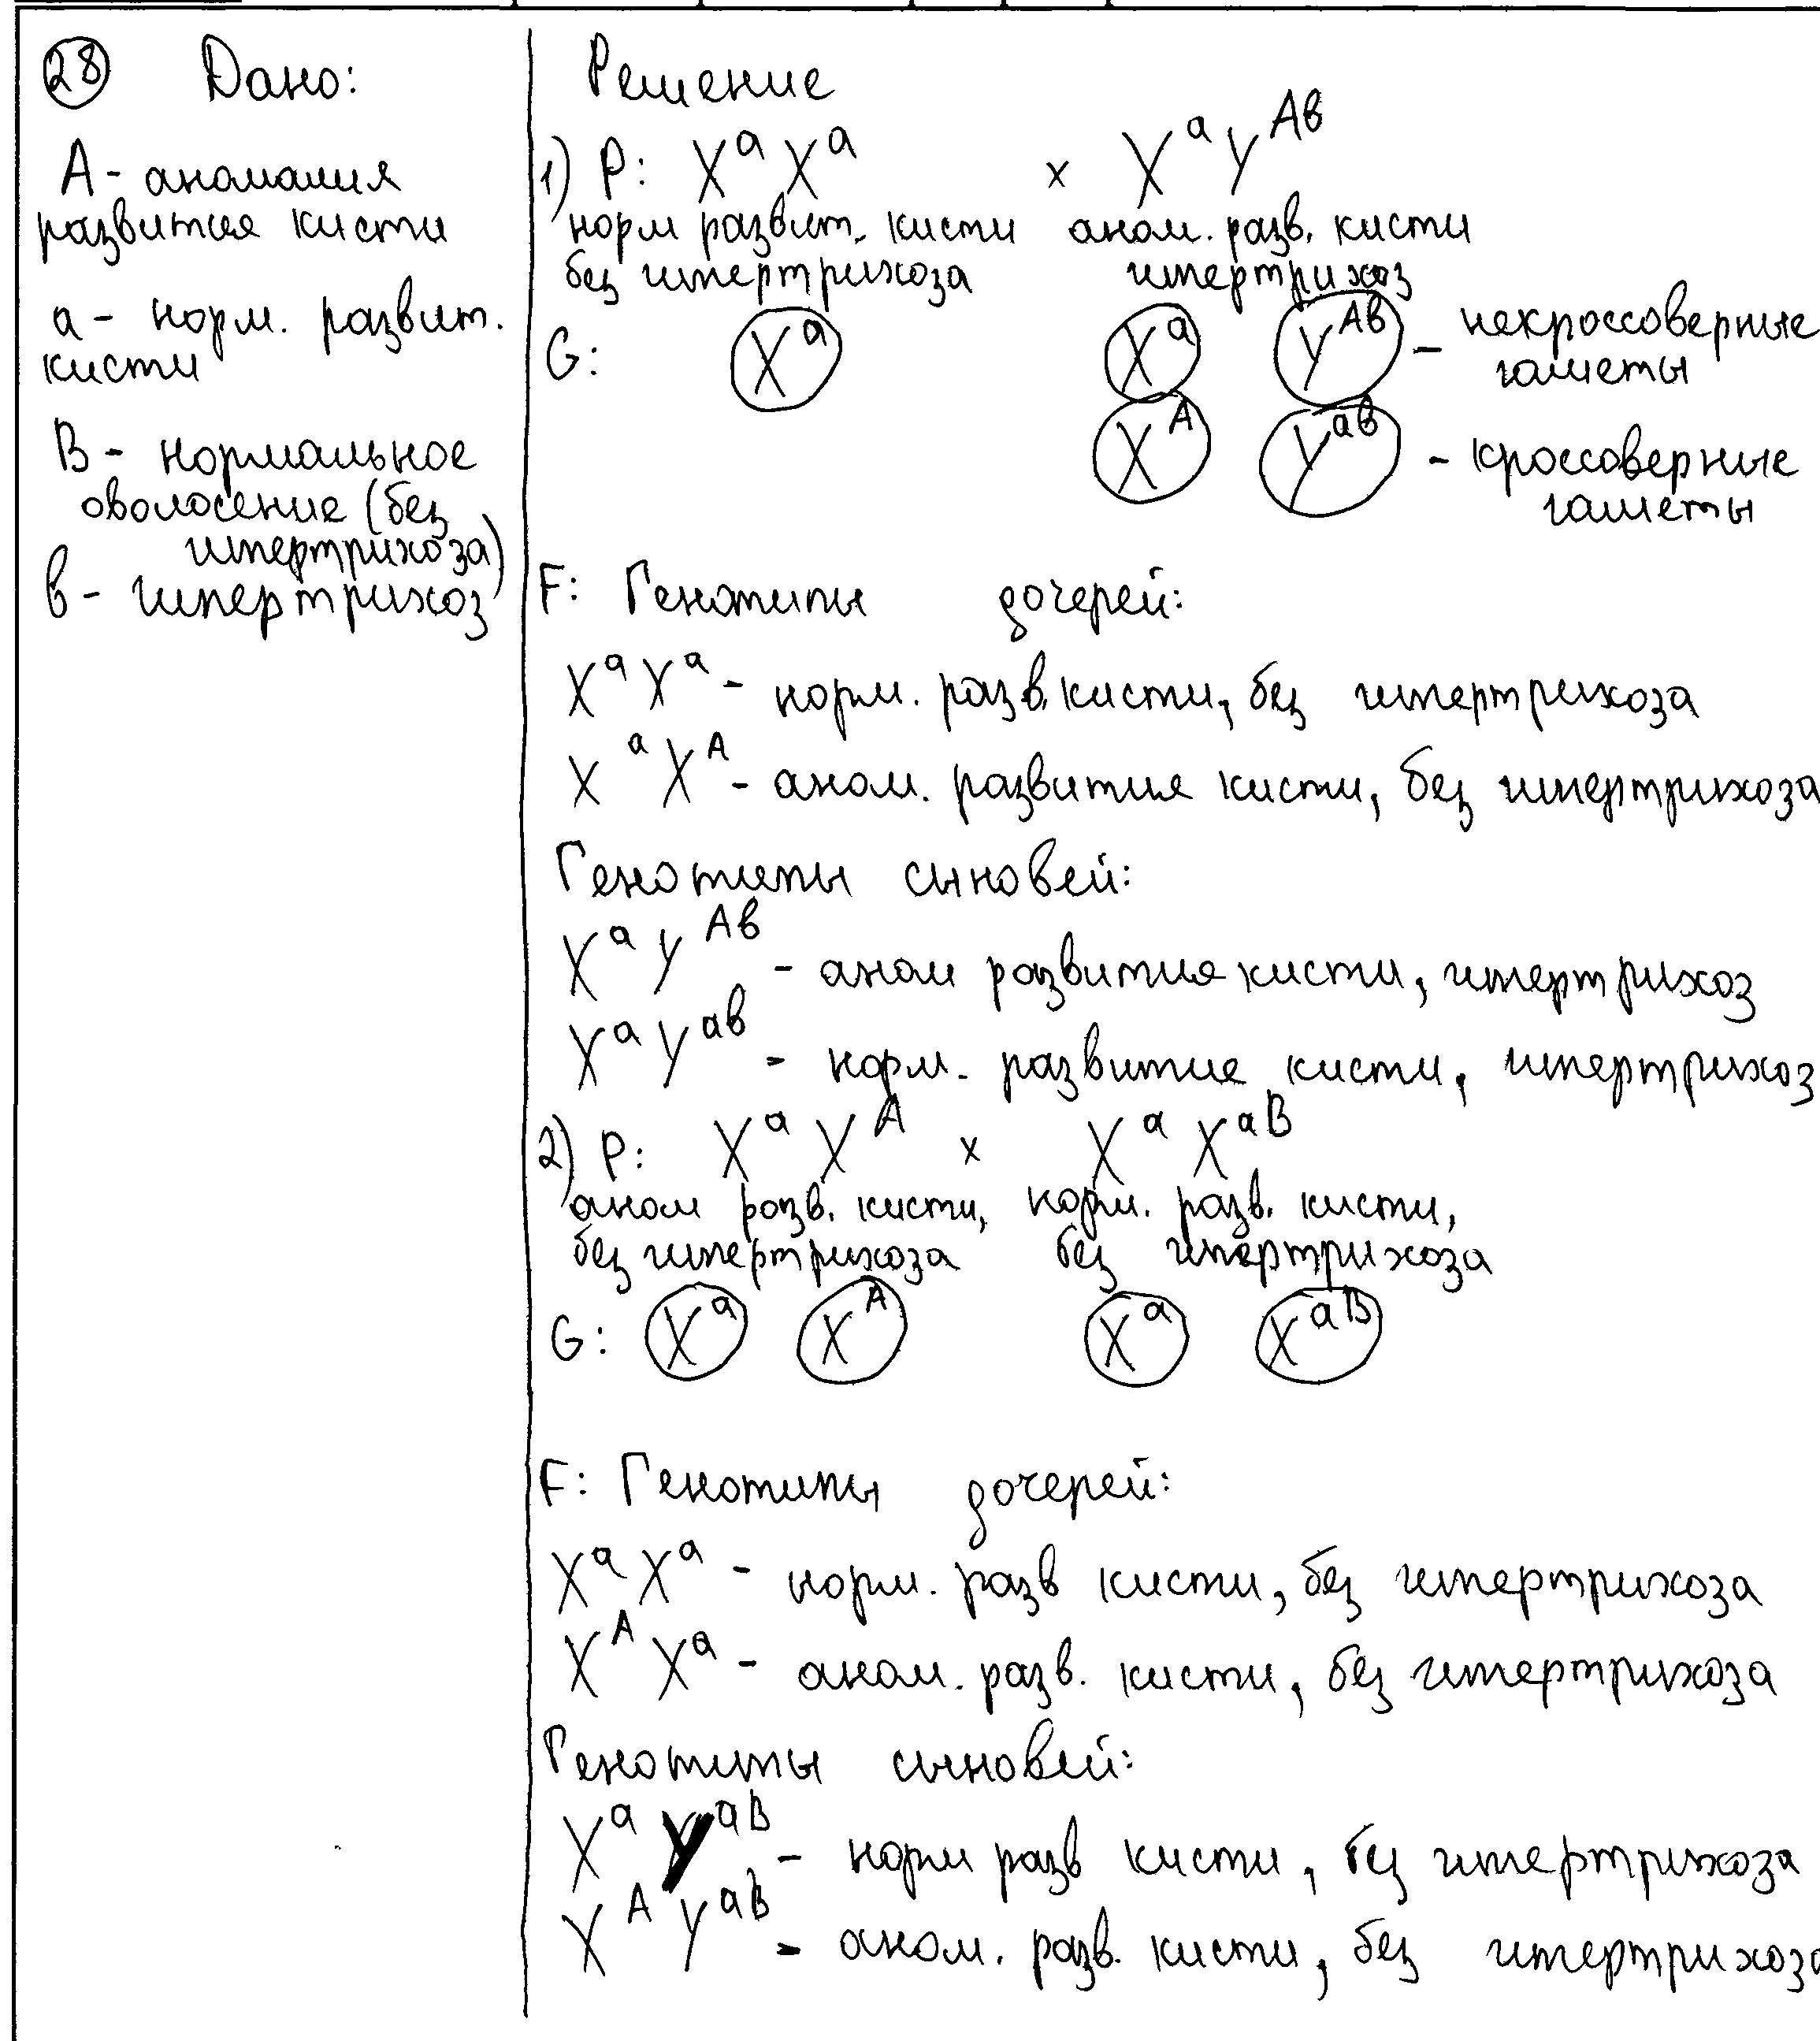 28 Дано:
А - аномалия
развития кисти
а - норм. развит.
кисти
В - нормальное
оволосение (без
гипертрихоза)
в - гипертрихоз
Решение
1) P: X^a X^a x X^a Y^Aв
норм развит. кисти аном. разв. кисти
без гипертрихоза гипертрихоз
G: X^a X^a Y^Aв - некроссоверные
гаметы
X^A Y^aв - кроссоверные
гаметы
F: Генотипы дочерей:
X^a X^a - норм. разв. кисти, без гипертрихоза
X^a X^A - аном. развития кисти, без гипертрихоза
Генотипы сыновей:
X^a Y^Aв - аном развития кисти, гипертрихоз
X^a Y^aв - норм. развитие кисти, гипертрихоз
2) P: X^a X^A x X^a X^aB
аном разв. кисти, норм. разв. кисти,
без гипертрихоза без гипертрихоза
G: X^a X^A X^a X^aB
F: Генотипы дочерей:
X^a X^a - норм. разв кисти, без гипертрихоза
X^A X^a - аном. разв. кисти, без гипертрихоза
Генотипы сыновей:
X^a Y^aB - норм разв кисти, без гипертрихоза
X^A Y^aB - аном. разв. кисти, без гипертрихоза